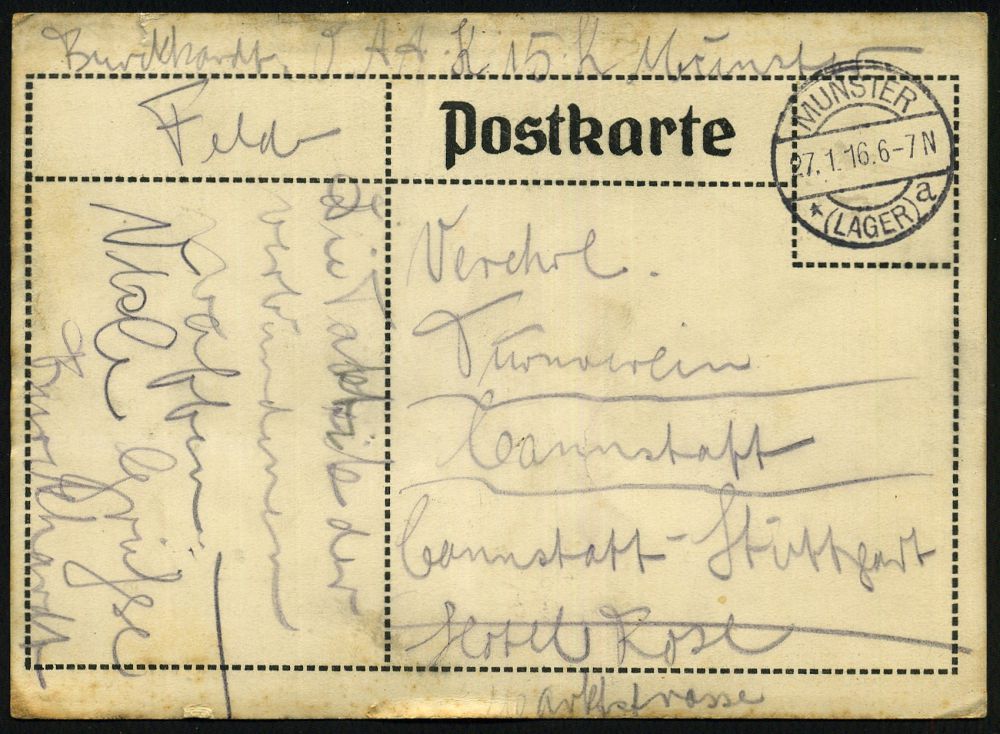 Burckhardt. I A A K. 15. K Münster
Feld-
Postkarte
MUNSTER
27.1.16.6-7N
* (LAGER) a
Verehrl.
Turnverein
Cannstatt
Cannstatt-Stuttgart
Hotel Rose
Marktstrasse
Die Taktik der
verbundenen
Waffen.
Viele Grüsse
Burckhardt